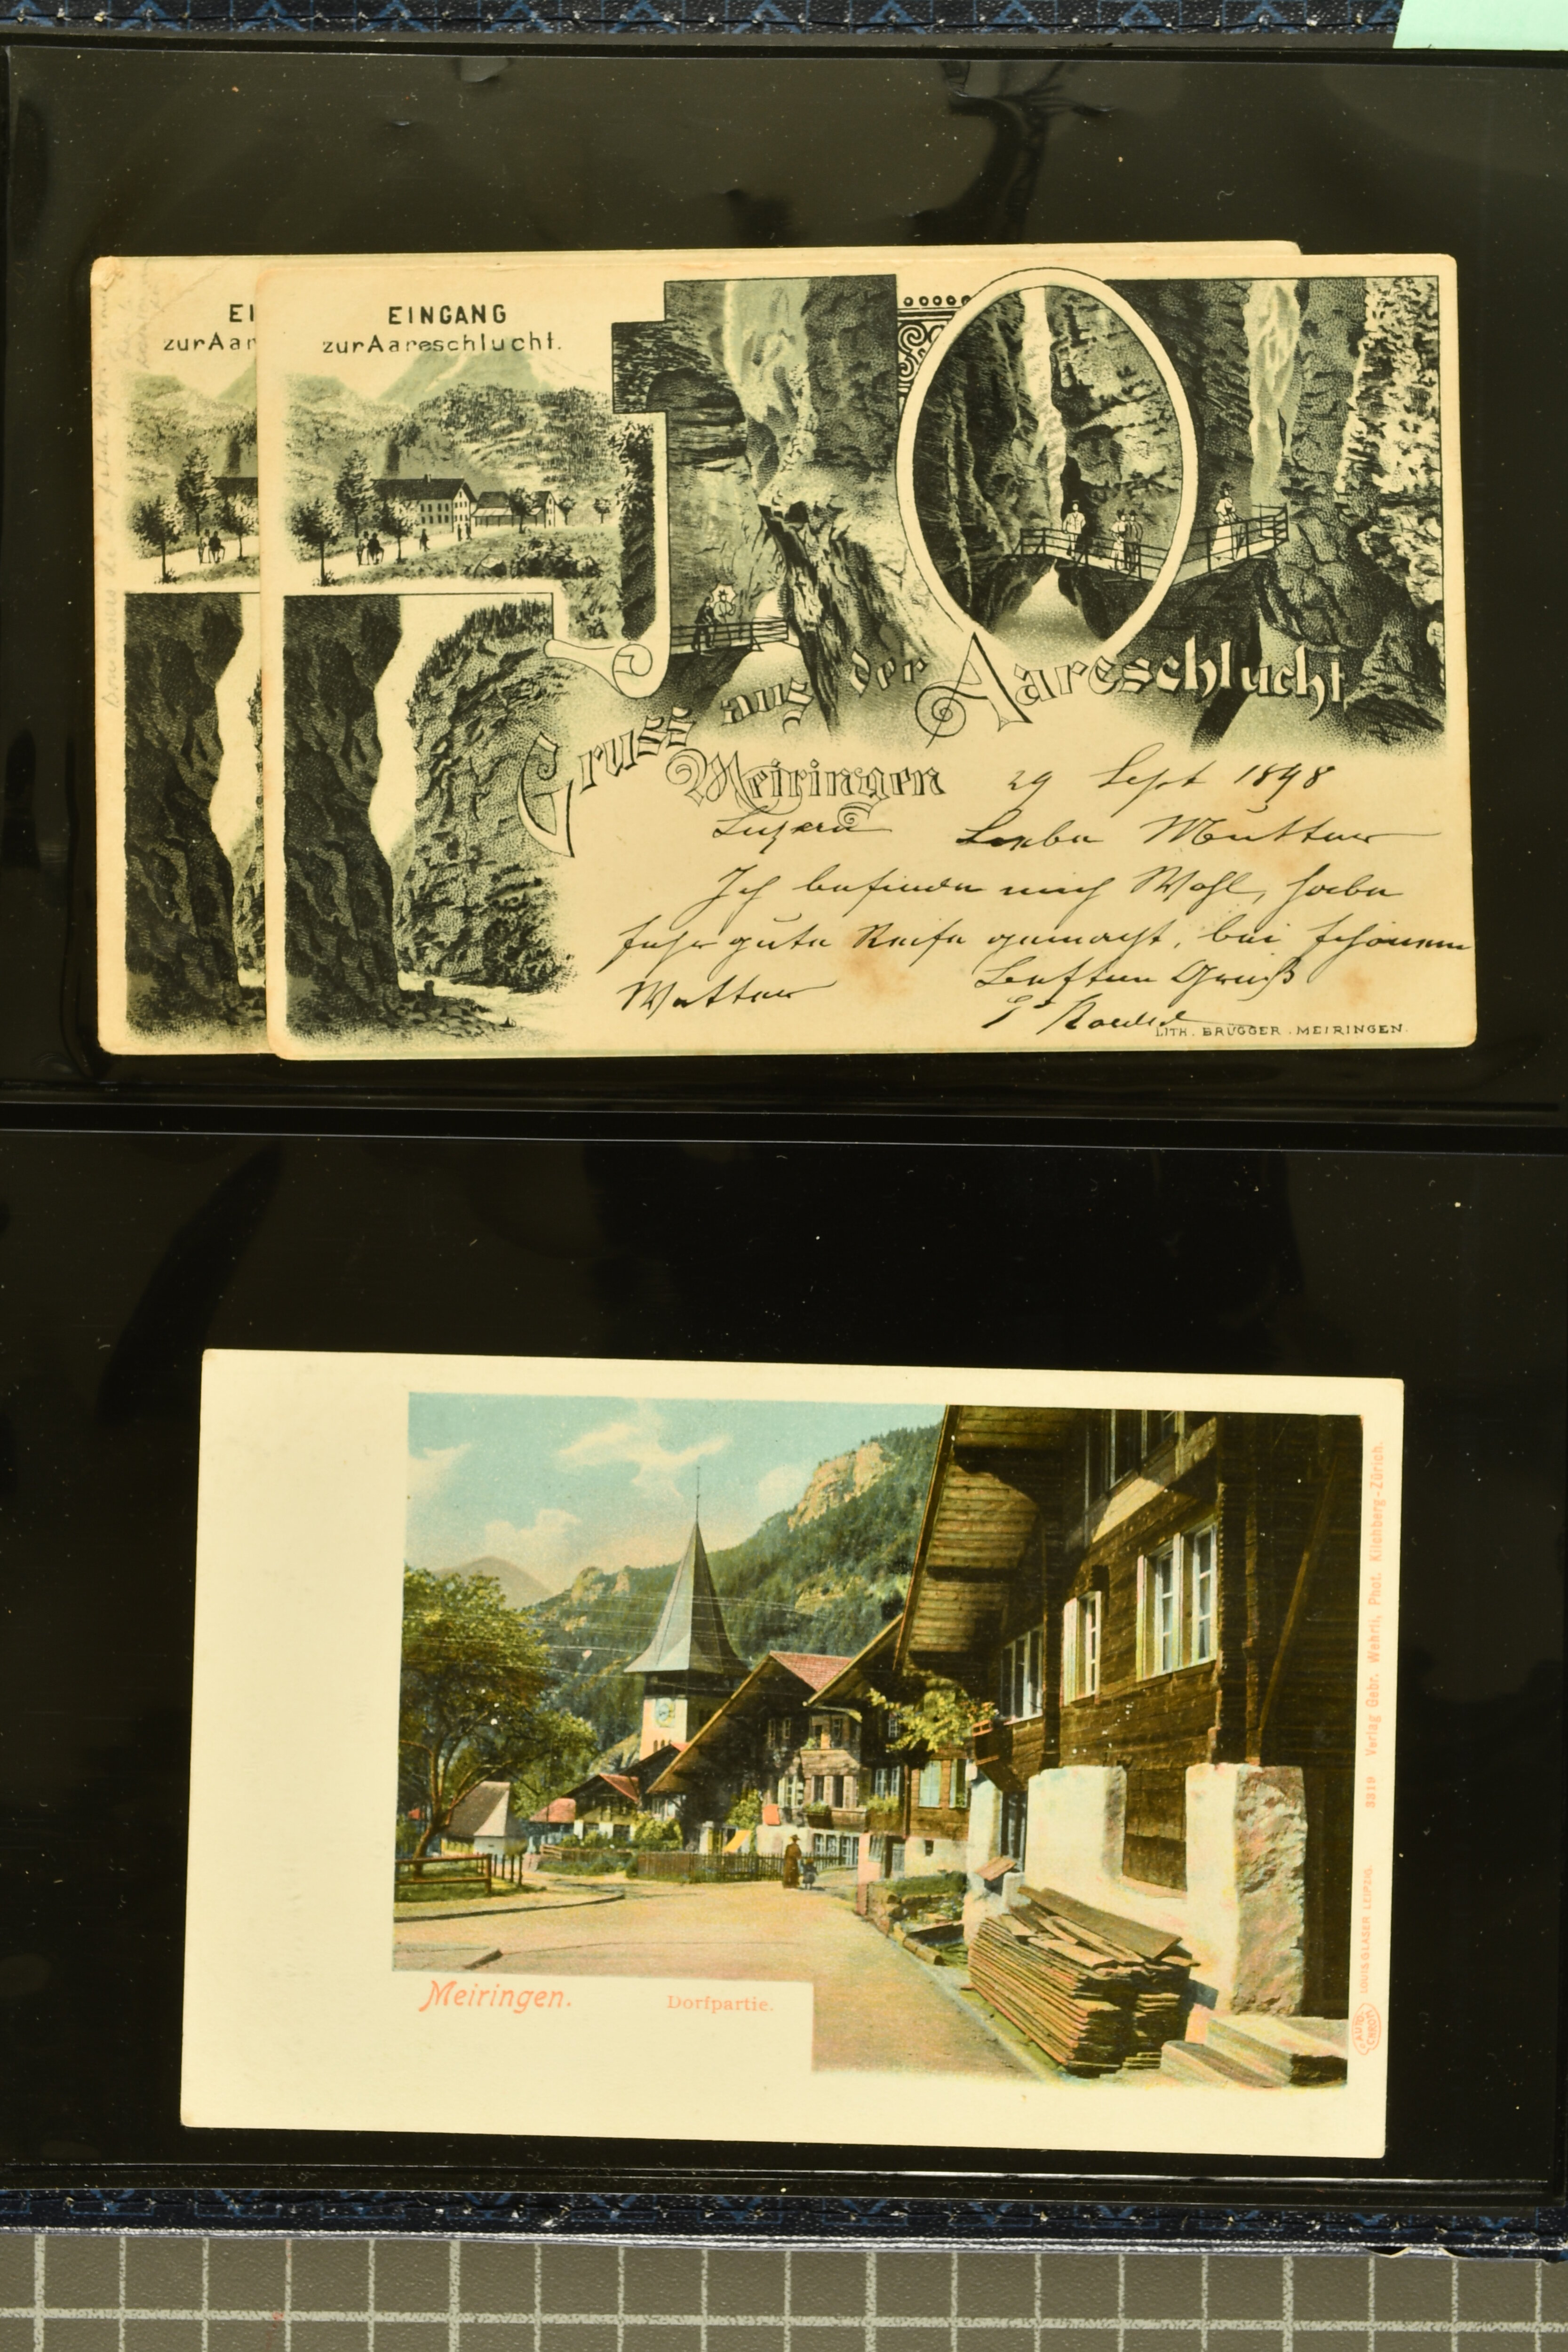 EI
zurAar
EINGANG
zurAareschlucht.
Gruss aus der Aareschlucht
Meiringen
29 Sept 1898
Luzern Liebe Mutter
Ich befinde mich Wohl, habe
sehr gute Reise gemacht, bei schönem
Wetter Besten Gruß
LITH. BRÜGGER. MEIRINGEN.
Meiringen. Dorfpartie.
3319 Verlag Gebr. Wehrli, Phot. Kilchberg-Zürich.
LOUIS GLASER LEIPZIG.
AUTO
CHROM